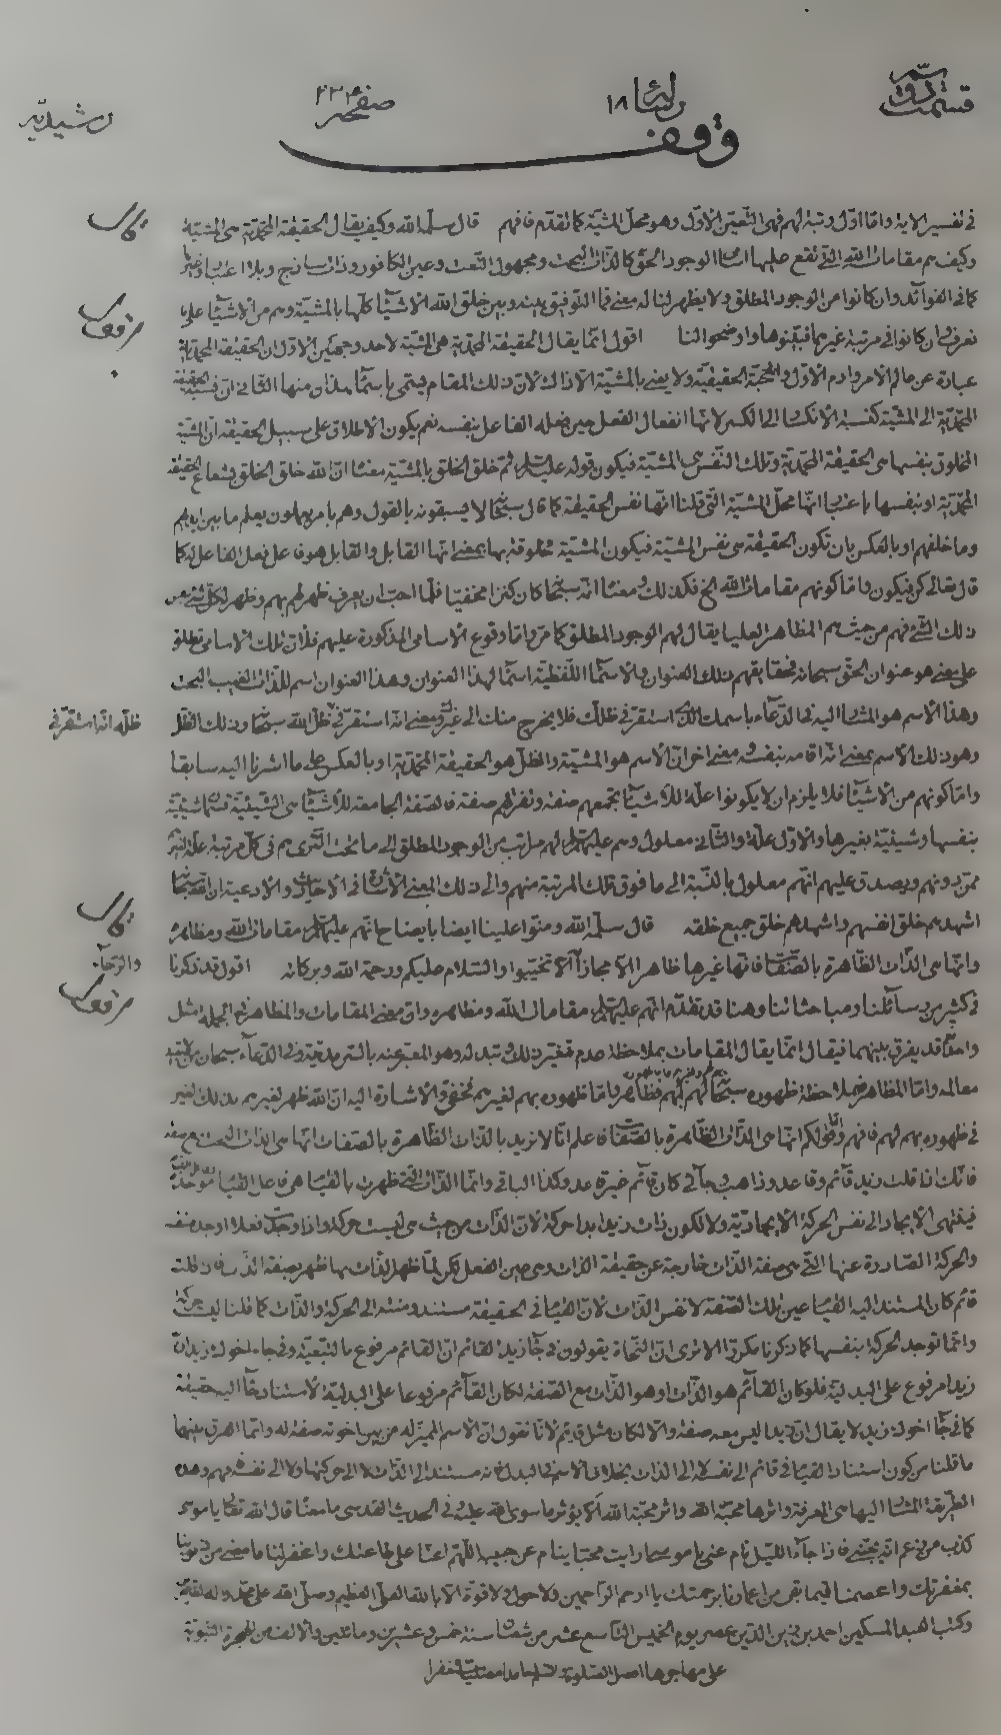 قسمت دوم
رسالة ١٨
صفحه ٢٣٤
رشيدية
وقف
في تفسير الاية واما اول رتبة لهم فهى التعين الاول وهو محل المشية كما تقدم فافهم قال سلمه الله وكيف يقال الحقيقة المحمدية هى المشية
وكيف هم مقامات الله التى تقع عليها اسماء الوجود الحق كالذات البحت ومجهول النعت وعين الكافور وذات ساذج وبلا اعتبار
كما فى الفوائد وان كانوا من الوجود المطلق ولا يظهر لنا له معنى فما التوفيق بينه وبين خلق الله الاشياء كلها بالمشية وهم من الاشياء على ما
نعرف وان كانوا فى مرتبة غيرها فبينوها واوضحوا لنا اقول انما يقال الحقيقة المحمدية هى المشية لاحد وجهين الاول ان الحقيقة المحمدية
عبارة عن عالم الامر وادم الاول والمحبة الحقيقية ولا يعنى بالمشية الا ذاك لان ذلك المقام يسمى باسماء هذان منها الثانى ان نسبة الحقيقة
المحمدية الى المشية كنسبة الانكسار الى الكسر لانها انفعال الفعل حين فعله الفاعل بنفسه نعم يكون الاطلاق على سبيل الحقيقة ان المشية
المخلوق بنفسها هى الحقيقة المحمدية وتلك النفس هى المشية فيكون قوله عليه السلم ثم خلق الخلق بالمشية معناه ان الله خلق الخلق بشعاع الحقيقة
المحمدية او بنفسها باعتبار انها محل المشية التى قلنا انها نفس الحقيقة كما قال سبحانه لا يسبقونه بالقول وهم بامره يعملون يعلم ما بين ايديهم
وما خلفهم او بالعكس بان تكون الحقيقة هى نفس المشية فيكون المشية مخلوقة بها بمعنى انها القابل والقابل هو فاعل فعل الفاعل له كما
قال تعالى كن فيكون واما كونهم مقامات الله الخ فكذلك ومعناه انه سبحانه كان كنزا مخفيا فلما احب ان يعرف ظهر لهم بهم وظهر لكل شئ من
ذلك الشئ فهم من حيث هم المظاهر العليا يقال لهم الوجود المطلق كما مر واما وقوع الاسامى المذكورة عليهم فلان تلك الاسامى تطلق
على معنى هو عنوان الحق سبحانه فحقايقهم ذلك العنوان والاسماء اللفظية اسماء لهذا العنوان وهذا العنوان اسم للذات الغيب البحت
وهذا الاسم هو المشار اليه فى الدعاء باسمك الذى استقر فى ظلك فلا يخرج منك الى غيرك ومعنى انه استقر فى ظل الله سبحانه وذلك الظل
ظله انه استقر فى
وهو ذلك الاسم بمعنى انه اقامه بنفسه ومعنى اخر ان الاسم هو المشية والظل هو الحقيقة المحمدية او بالعكس على ما اشرنا اليه سابقا
واما كونهم من الاشياء فلا يلزم ان لا يكونوا علة للاشياء تجمعهم صفة وتفرقهم صفة فالصفة الجامعة للاشياء هى الشيئية
بنفسها وشيئية بغيرها والاول علة والثانى معلول وهم عليهم السلم لهم مراتب من الوجود المطلق الى ما تحت الثرى هم فى كل مرتبة علة لغيرهم
ممن دونهم ويصدق عليهم انهم معلول بالنسبة الى ما فوق تلك المرتبة منهم والى ذلك المعنى الاشارة فى الاحاديث والادعية ان الله سبحانه
اشهدهم خلق انفسهم واشهدهم خلق جميع خلقه قال سلمه الله ومنوا علينا ايضا بايضاح انهم عليهم السلم مقامات الله ومظاهره
وانها هى الذات الظاهرة بالصفات فانها غيرها ظاهرا لا مجازا والسلام عليكم ورحمة الله وبركاته اقول قد ذكرنا
فى كثير من رسائلنا ومباحثاتنا وهنا قد تقدم انهم عليهم السلم مقامات الله ومظاهره وان معنى المقامات والمظاهر فى الجملة مثل
واحد وقد يفرق بينهما فيقال انما يقال المقامات بملاحظة عدم تغير ذلك وتبدله وهو المعبر عنه بالسرمدية وفى الدعاء
معالمه واما المظاهر فبملاحظة ظهوره سبحانه لهم بهم فظاهر واما ظهوره بهم لغيرهم فخفى والاشارة اليه ان الله ظهر لغيرهم
فى ظهوره بهم لهم فافهم وقولكم انها هى الذات الظاهرة بالصفات فاعلم انا لا نريد بالذات الظاهرة بالصفات انها هى الذات البحت مع صفة
فانك اذا قلت زيد قائم وقاعد وذاهب وجائى كان قائم غير قاعد وكذا الباقى وانما الذات التى ظهرت بالقيام هى فاعل القيام
فينتهى الايجاد الى نفس الحركة الايجادية ولا تكون ذات زيد ابدا حركة لان الذات من حيث هى ليست حركة
والحركة الصادرة عنها التى هى صفة الذات خارجة عن حقيقة الذات وهى عين الفعل لكن لما ظهر الذات بها ظهر بصفة الذات فاذا قلت
قائم كان المستند اليه القيام عين تلك الصفة لا نفس الذات لان القيام فى الحقيقة مستند ومنته الى الحركة والذات كما قلنا ليست حركة
وانما توجد الحركة بنفسها كما ذكرنا مكررا الا ترى ان النحاة يقولون فى جاء زيد القائم ان القائم مرفوع بالتبعية وفى جاء اخوك زيد ان
زيدا مرفوع على البدلية فلو كان القائم هو الذات او هو الذات مع الصفة لكان القائم مرفوعا على البدلية لاستناد جاء اليه حقيقة
كما فى جاء اخوك زيد لا يقال ان زيدا ليس معه صفة والا لكان مثل قائم لانا نقول ان الاسم المميز له من بين اخوته صفة له وانما الفرق بينهما
ما قلنا من كون استناد القيام فى قائم الى نفسه لا الى الذات بخلاف الاسم فى البدل فانه مستند الى الذات لا الى حركتها ولا الى نفسه فافهم وهذه
الطريقة المشار اليها هى المعرفة واثرها محبة الله واثر محبة الله الا يؤثر ما سوى الله عليه وفى الحديث القدسى ما معناه قال الله تعالى يا موسى
كذب من زعم انه يحبنى فاذا جاء الليل نام عنى يا موسى ارايت محبا ينام عن حبيبه اللهم اعنا على طاعتك واغفر لنا ما مضى من ذنوبنا
بمغفرتك واعصمنا فيما بقى من اعمارنا برحمتك يا ارحم الراحمين ولا حول ولا قوة الا بالله العلى العظيم وصلى الله على محمد واله الطيبين
وكتب العبد المسكين احمد بن زين الدين عصر يوم الخميس التاسع عشر من شعبان سنة خمس وعشرين ومائتين والالف من الهجرة النبوية
على مهاجرها افضل الصلوة والسلم حامدا مصليا مستغفرا